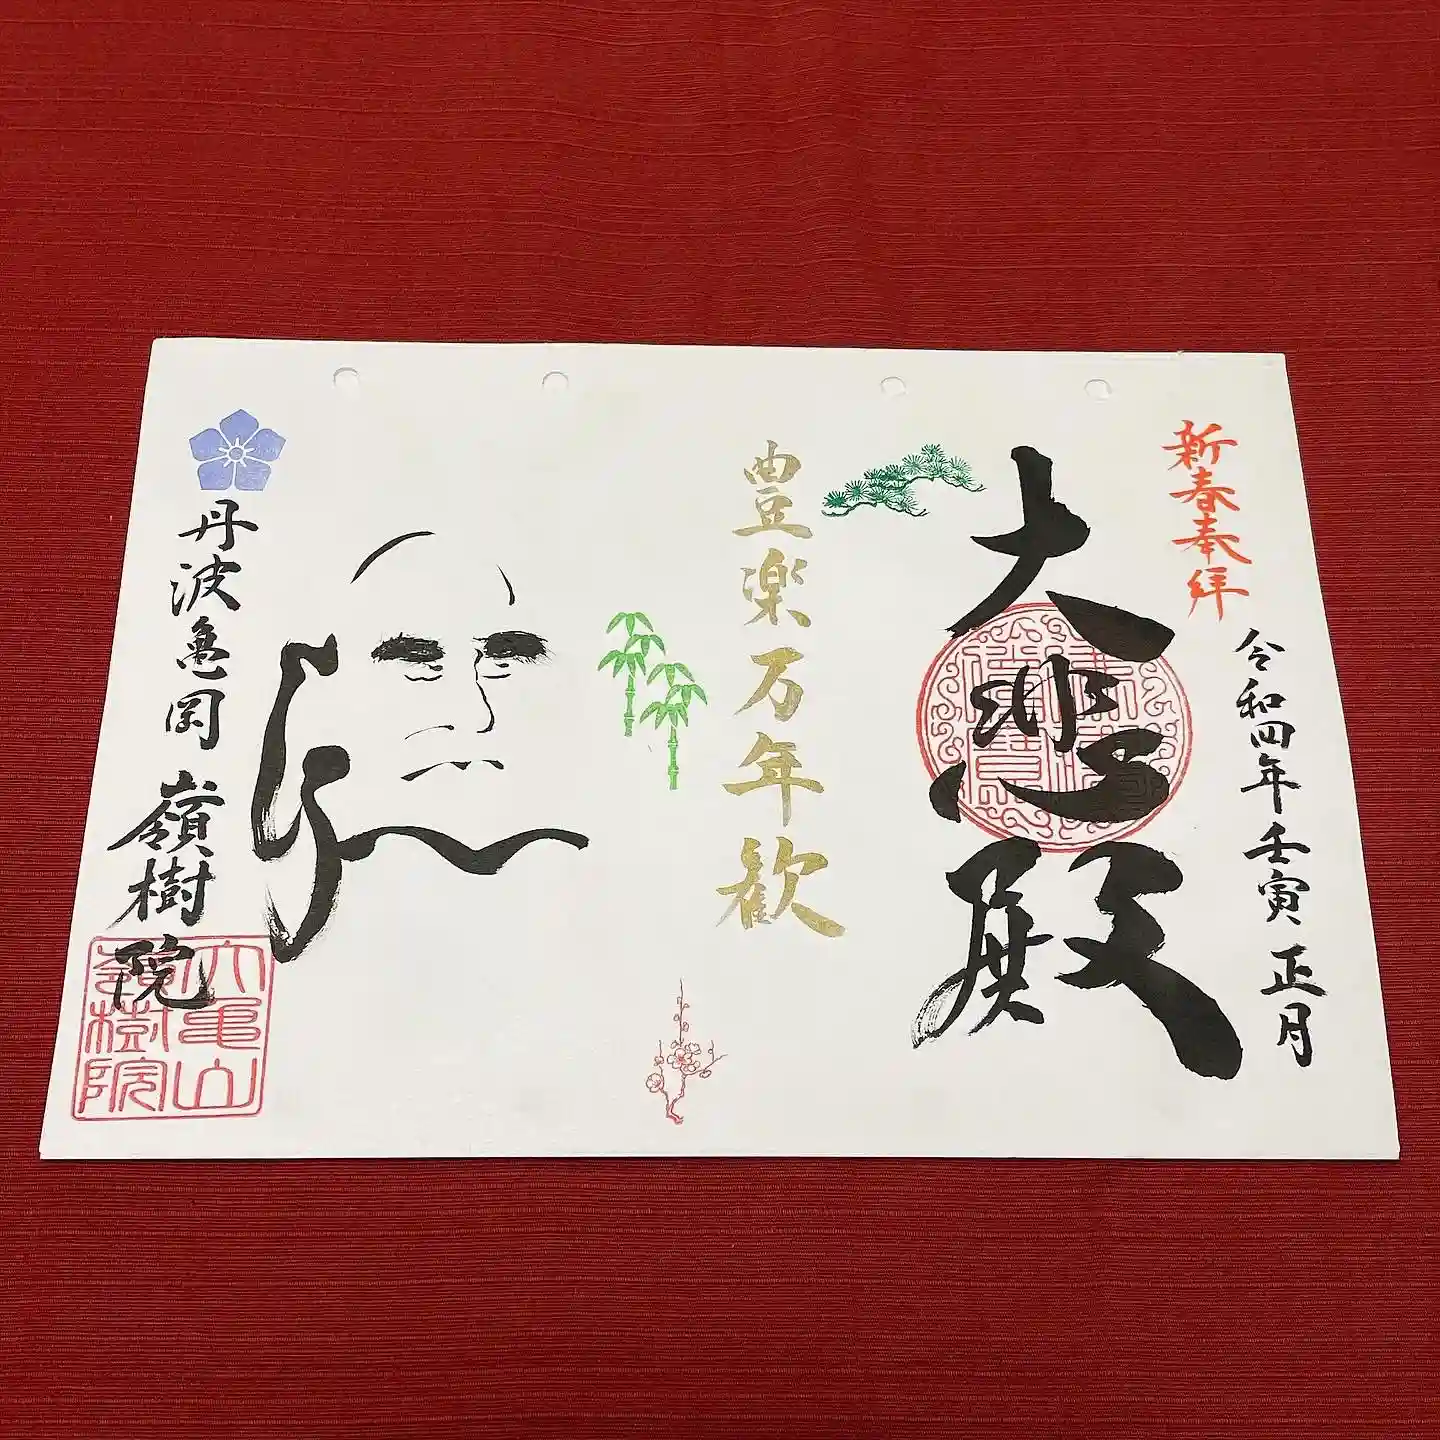 新春奉拝
令和四年壬寅 正月
大悲殿
豊楽万年歓
丹波亀岡 嶺樹院
大亀山
嶺樹院